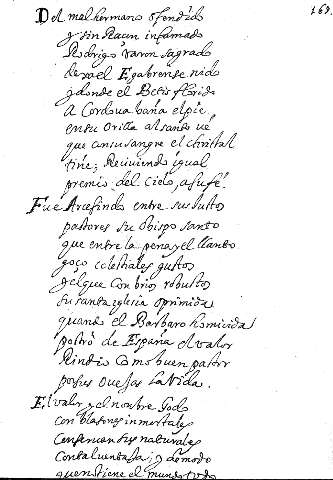 169.
Del mal hermano ofendido
y sin Raçon infamado
Rodrigo varon sagrado
dexo el Egabrense nido
y donde el Betis florido
A Cordoua baña el pie
en su orilla al sancto ve
que con su sangre el christal
tiñe; Reciviendo igual
premio del Cielo, a su fe.
Fue Arcesindo entre sus justos
pastores su obispo santo
que entre la pena y el llanto
goço celestiales gustos
y el que con brios robustos
su santa iglesia oprimida
quando el Barbaro homicida
postró de España el valor
Rindio Como buen pastor
por sus ouejas la vida.
El valor y el nombre Godo
con blasones inmortales
conseruan sus naturales
Con tal ventaja; y de modo
que no tiene el mundo todo